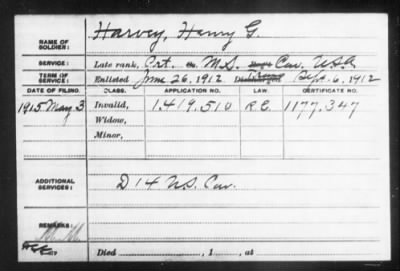 NAME OF SOLDIER: Harvey, Henry G.
SERVICE: Late rank, Pvt. M.S. Cav. U.S.A
TERM OF SERVICE: Enlisted June 26, 1912 Discharged Sept. 6, 1912
DATE OF FILING. CLASS. APPLICATION NO. LAW. CERTIFICATE NO.
1915 May 3 Invalid, 1.419.510 R.E. 1177.347
Widow,
Minor,
ADDITIONAL SERVICES: D 14 U.S. Cav.
REMARKS:
Died , 1 , at